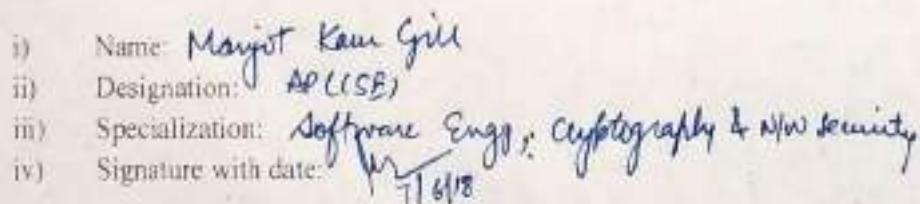 i) Name: Manjot Kaur Gill
ii) Designation: AP (CSE)
iii) Specialization: Software Engg, Cryptography & N/W Security
iv) Signature with date: 7/6/18